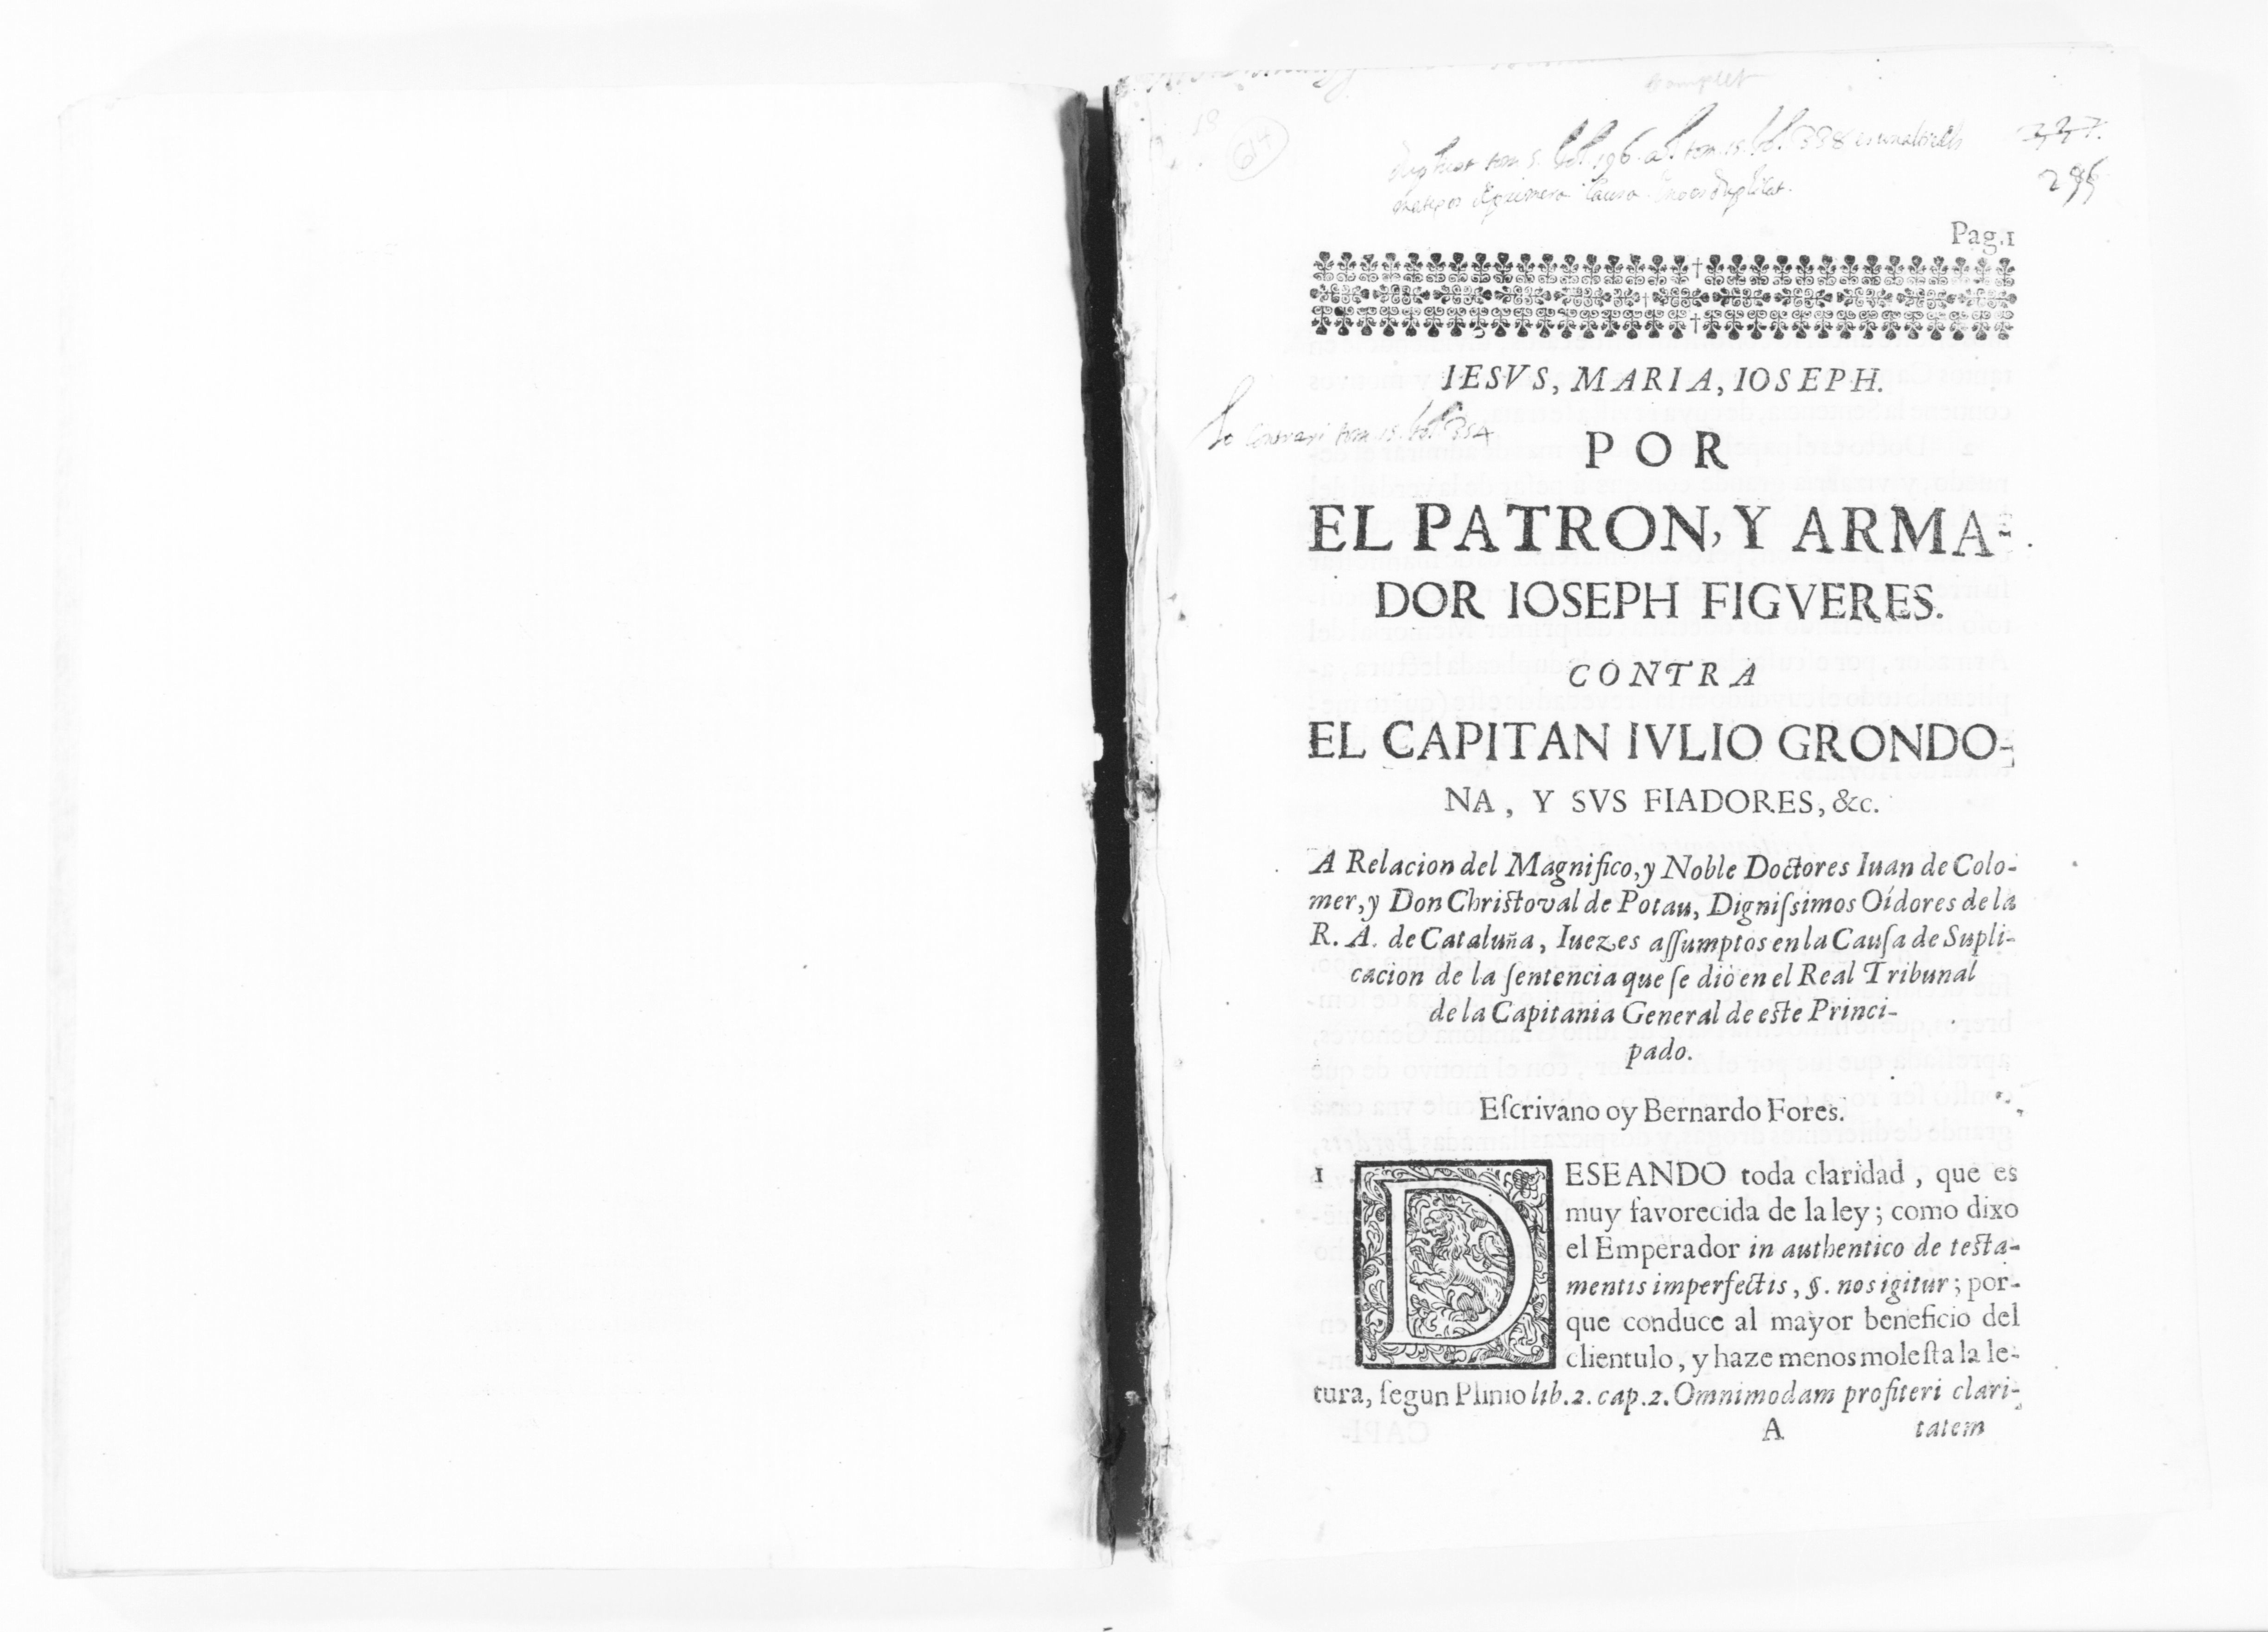 complet
337.
Pag.1
IESVS, MARIA, IOSEPH.
POR
EL PATRON, Y ARMA-
DOR IOSEPH FIGVERES.
CONTRA
EL CAPITAN IVLIO GRONDO-
NA, Y SVS FIADORES, &c.
A Relacion del Magnifico, y Noble Doctores Iuan de Colo-
mer, y Don Christoval de Potau, Digniſsimos Oídores de la
R. A. de Cataluña, Iuezes aſſumptos en la Cauſa de Supli-
cacion de la ſentencia que ſe diò en el Real Tribunal
de la Capitania General de este Princi-
pado.
Eſcrivano oy Bernardo Fores.
1 DESEANDO toda claridad, que es
muy favorecida de la ley; como dixo
el Emperador in authentico de testa-
mentis imperfectis, §. nos igitur; por-
que conduce al mayor beneficio del
clientulo, y haze menos moleſta la le-
tura, ſegun Plinio lib. 2. cap. 2. Omnimodam profiteri clari-
A tatem